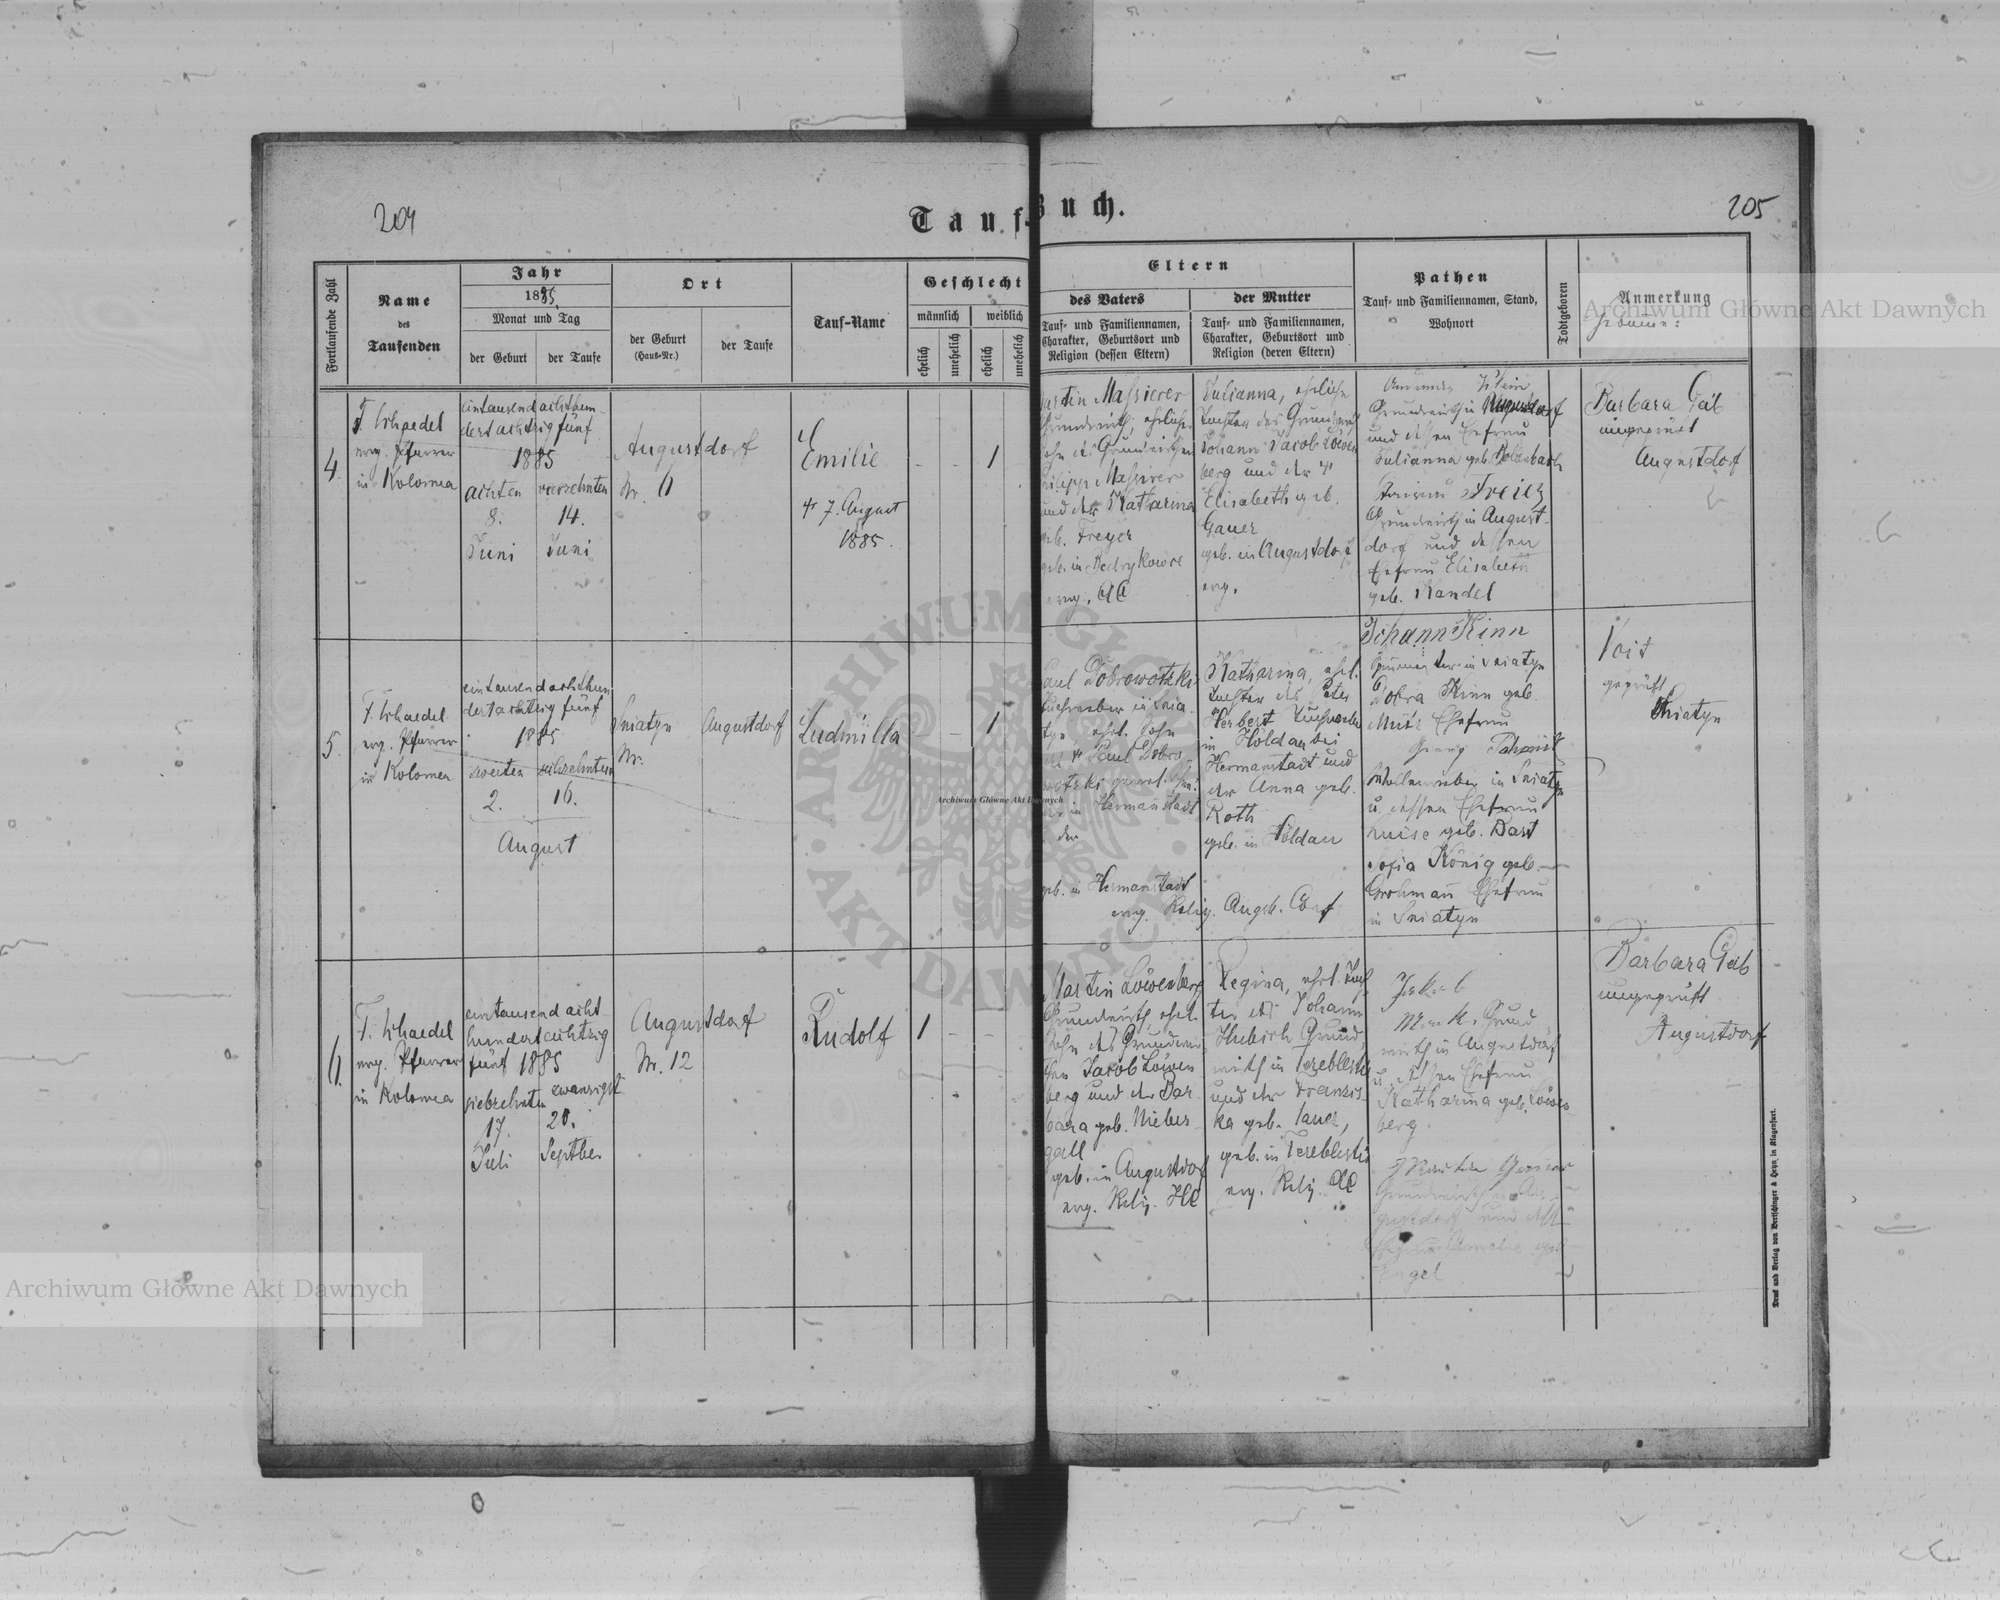 204
205
Tauf-Buch.
Fortlaufende Zahl
Name
des
Taufenden
Jahr
1885
Monat und Tag
der Geburt
der Taufe
Ort
der Geburt
(Haus-Nr.)
der Taufe
Tauf-Name
Geschlecht
männlich
weiblich
ehelich
unehelich
ehelich
unehelich
Eltern
des Vaters
Tauf- und Familiennamen,
Charakter, Geburtsort und
Religion (dessen Eltern)
der Mutter
Tauf- und Familiennamen,
Charakter, Geburtsort und
Religion (deren Eltern)
Pathen
Tauf- und Familiennamen, Stand,
Wohnort
Todtgeboren
Anmerkung
4.
evg. Pfarrer
in Kolomea
eintausendachthun-
dertachtzigfünf
1885
achten
vierzehnten
8.
14.
Juni
Juni
Augustdorf
Nr. 6
Emilie
† 7. August
1885.
1
Martin Massierer
Grundwirth, ehelicher
Sohn des Grundwirthen
Philipp Massirer
und der Katharina
geb. Freyer
geb. in
evg. AC
Julianna, eheliche
Tochter des Grundwirth
Johann Jacob Löwen
berg und der †
Elisabeth geb.
Gauer
geb. in Augustdorf
evg.
Grundwirth in Augustdorf
und dessen Ehefrau
Julianna geb.
Grundwirth in August-
dorf und dessen
Ehefrau Elisabeth
geb. Mandel
Barbara Gäb
ungeprüft
Augustdorf
5.
evg. Pfarrer
in Kolomea
eintausendachthun
dertachtzigfünf
1885
zweiten
sechzehnten
2.
16.
August
Sniatyn
Nr.
Augustdorf
Ludmilla
1
Paul Dobrowotzki
Tuchweber in Snia-
tyn, ehel. Sohn
des † Paul Dobro-
wotzki
in Hermanstadt
der
geb. in Hermanstadt
evg. Relig. Augsb. Conf
Katharina, ehel.
Tochter des Peter
Herbert Tuchweber
in Holdau bei
Hermanstadt und
der Anna geb.
Roth
geb. in Holdau
Johann Kinn
in Sniatyn
Kinn geb.
Ehefrau
Georg
in Sniatyn
u. dessen Ehefrau
Luise geb. Bast
Sofia König geb.
Grohman Ehefrau
in Sniatyn
Voit
geprüft
Sniatyn
6.
evg. Pfarrer
in Kolomea
eintausendacht
hundertachtzig
fünf 1885
siebzehnten
zwanzigst
17.
20.
Juli
Septber
Augustdorf
Nr. 12
Rudolf
1
Martin Löwenberg
Grundwirth, ehel.
Sohn des Grundwir
then Jacob Löwen
berg und der Bar-
bara geb. Nieber-
gall
geb. in Augustdorf
evg. Relig. HC
Regina, ehel. Toch
ter des Johann
Hubich Grund
wirth in Tereblestie
und der Franzis-
ka geb. Sauer,
geb. in Tereblestie
evg. Relig. AC
Jakob
Grund
wirth in Augustdorf
u. dessen Ehefrau
Katharina geb. Löwen
berg
Barbara Gäb
ungeprüft
Augustdorf
Druck und Verlag von Bertschinger & Heyn in Klagenfurt.
Archiwum Główne Akt Dawnych
Archiwum Główne Akt Dawnych
Archiwum Główne Akt Dawnych
ARCHIWUM GŁÓWNE
AKT DAWNYCH